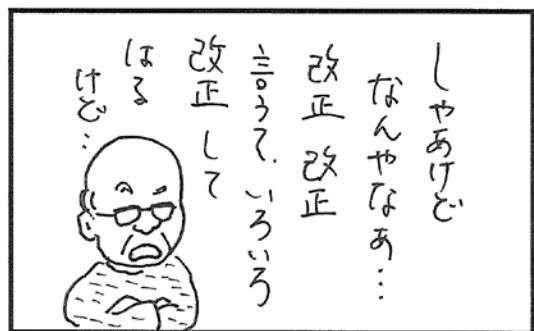 しゃあけど
なんやなぁ…
改正 改正
言うて、いろいろ
改正して
はる
けど…